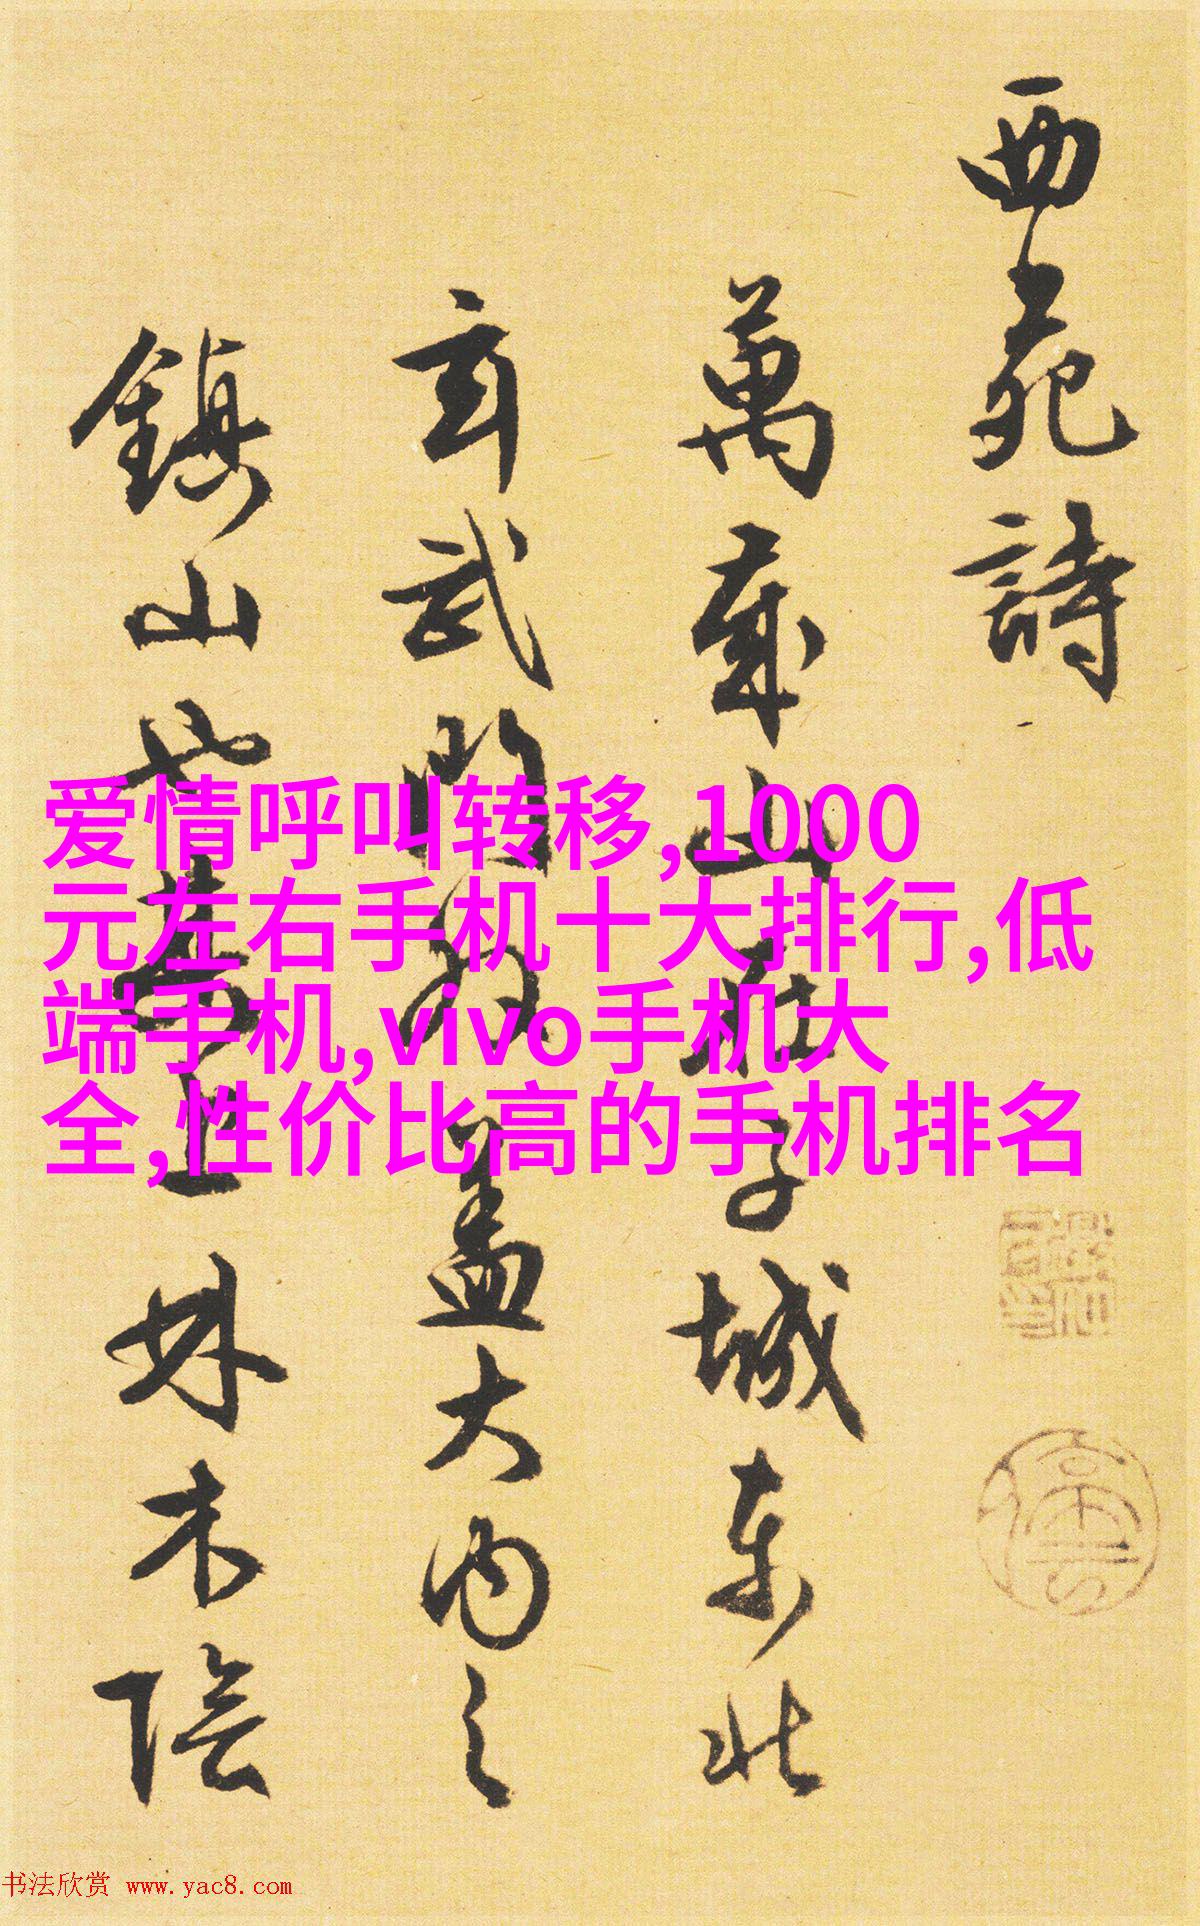 西苑詩
萬歲山在子城東北
玄武門外蓋大内之
鎮山也其上林木陰
爱情呼叫转移,1000
元左右手机十大排行,低
端手机,vivo手机大
全,性价比高的手机排名
书法欣赏 www.yac8.com